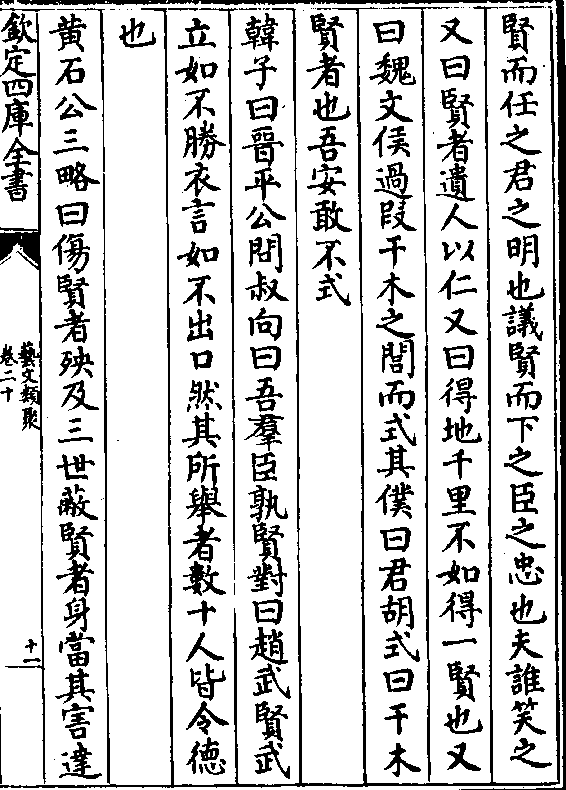 賢而任之君之明也議賢而下之臣之忠也夫誰笑之
又曰賢者遺人以仁又曰得地千里不如得一賢也又
曰魏文侯過段干木之閭而式其僕曰君胡式曰干木
賢者也吾安敢不式
韓子曰晉平公問叔向曰吾羣臣孰賢對曰趙武賢武
立如不勝衣言如不出口然其所舉者數十人皆令德
也
黄石公三略曰傷賢者殃及三世蔽賢者身當其害達
欽定四庫全書
藝文類聚
卷二十
十一